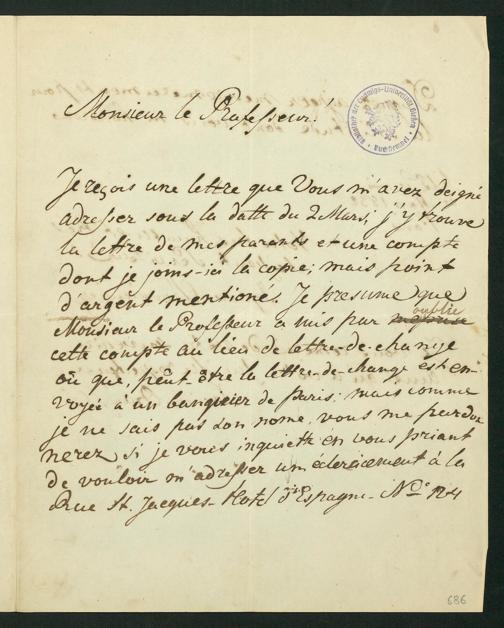 Monsieur le Professeur!
Bibliothek der Ludwigs-Universität Gießen
Je reçois une lettre que Vous m'avez deigné
adresser sous la datte du 2 Mars; j'y trouve
la lettre de mes parents et une compte
dont je joins-ici la copie; mais point
d'argent mentioné. Je presume que
oublie
Monsieur le Professeur a mis par
cette compte au lieu de lettre-de-change
où que, peût-être la lettre-de-change est en-
voyée à un banquier de Paris. mais comme
je ne sais pas son nome, vous me pardon
nerez si je vous inquiette en vous priant
de vouloir m'adresser un éclercicement à la
Rue St. Jacques-Hotel d'Espagne- N° 124
686